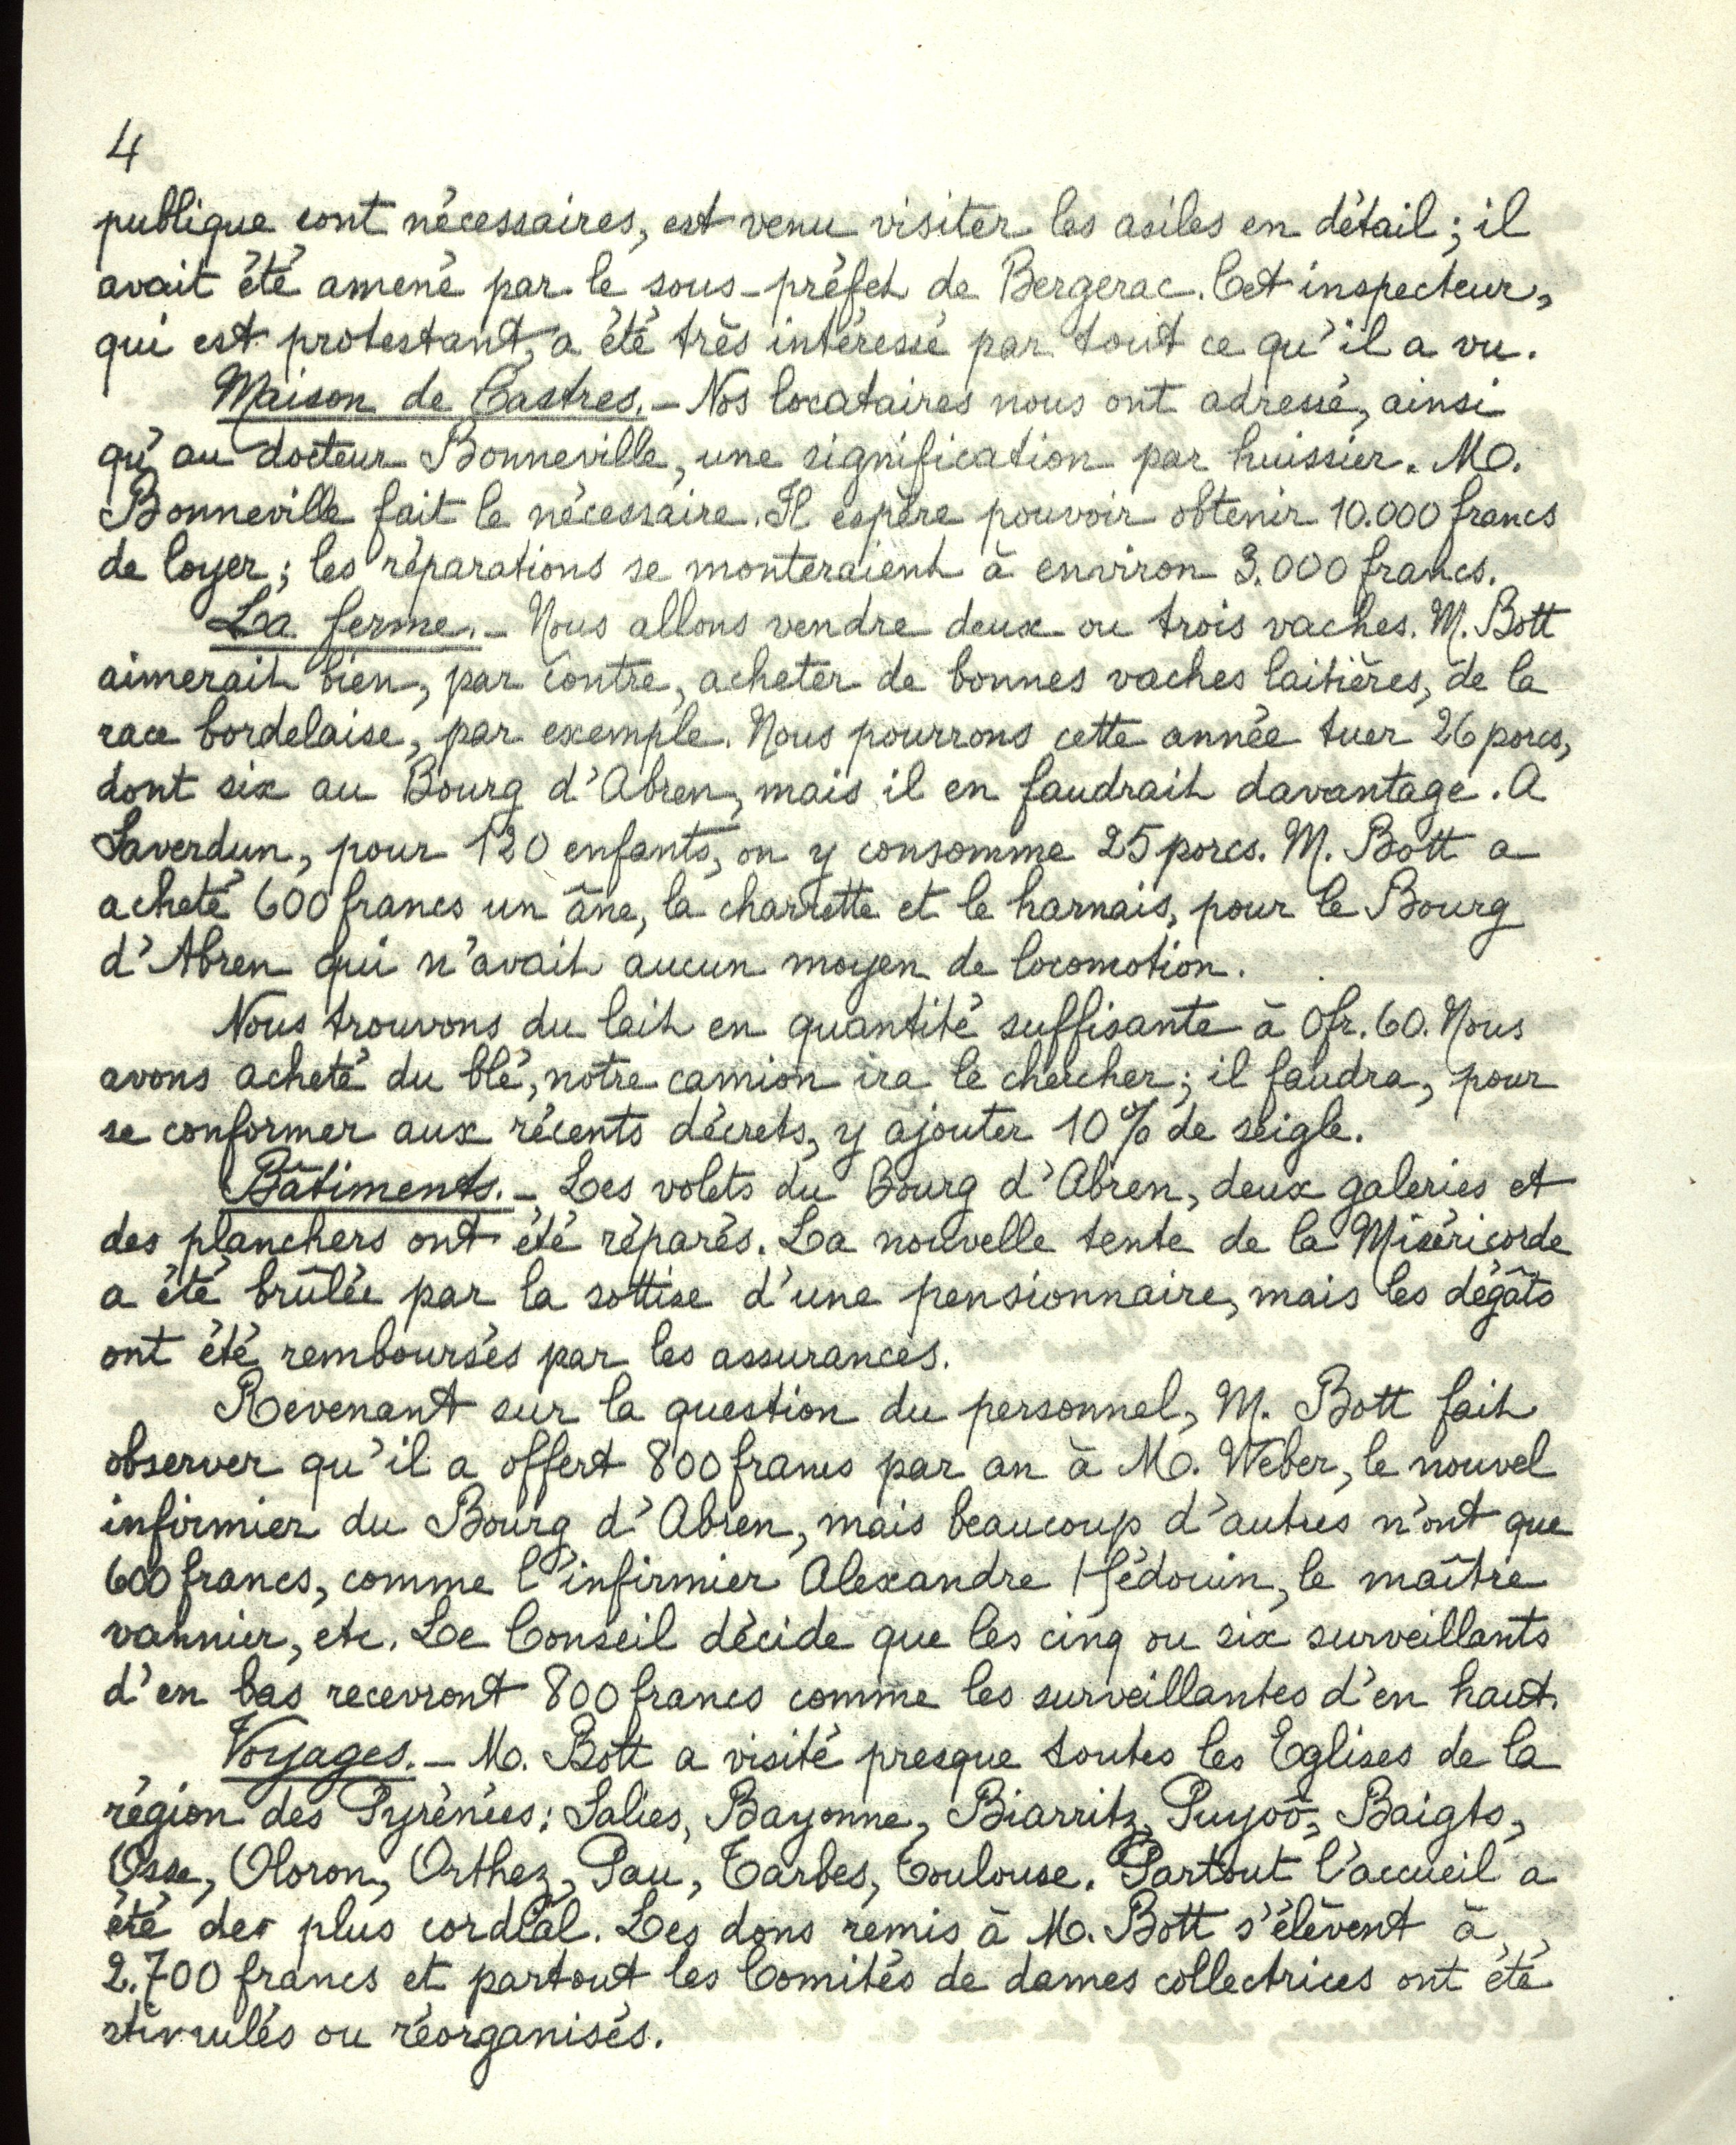 4
publique sont nécessaires, est venu visiter les asiles en détail ; il
avait été amené par le sous-préfet de Bergerac. Cet inspecteur,
qui est protestant, a été très intéressé par tout ce qu'il a vu.
Maison de Castres. - Nos locataires nous ont adressé, ainsi
qu'au docteur Bonneville, une signification par huissier. M.
Bonneville fait le nécessaire. Il espère pouvoir obtenir 10.000 francs
de loyer ; les réparations se monteraient à environ 3.000 francs.
La ferme. - Nous allons vendre deux ou trois vaches. M. Bott
aimerait bien, par contre, acheter de bonnes vaches laitières, de la
race bordelaise, par exemple. Nous pourrons cette année tuer 26 porcs,
dont six au Bourg d'Abren, mais il en faudrait davantage. A
Saverdun, pour 120 enfants, on y consomme 25 porcs. M. Bott a
acheté 600 francs un âne, la charrette et le harnais, pour le Bourg
d'Abren qui n'avait aucun moyen de locomotion.
Nous trouvons du lait en quantité suffisante à 0fr.60. Nous
avons acheté du blé, notre camion ira le chercher ; il faudra, pour
se conformer aux récents décrets, y ajouter 10% de seigle.
Bâtiments. - Les volets du Bourg d'Abren, deux galeries et
des planchers ont été réparés. La nouvelle tente de la Miséricorde
a été brûlée par la sottise d'une pensionnaire, mais les dégâts
ont été remboursés par les assurances.
Revenant sur la question du personnel, M. Bott fait
observer qu'il a offert 800 francs par an à M. Weber, le nouvel
infirmier du Bourg d'Abren, mais beaucoup d'autres n'ont que
600 francs, comme l'infirmier Alexandre Hédouin, le maître
vannier, etc. Le Conseil décide que les cinq ou six surveillants
d'en bas recevront 800 francs comme les surveillantes d'en haut.
Voyages. - M. Bott a visité presque toutes les Eglises de la
région des Pyrénées : Salies, Bayonne, Biarritz, Puyoô, Baigts,
Osse, Oloron, Orthez, Pau, Tarbes, Toulouse. Partout l'accueil a
été des plus cordial. Les dons remis à M. Bott s'élèvent à
2.700 francs et partout les Comités de dames collectrices ont été
stimulés ou réorganisés.